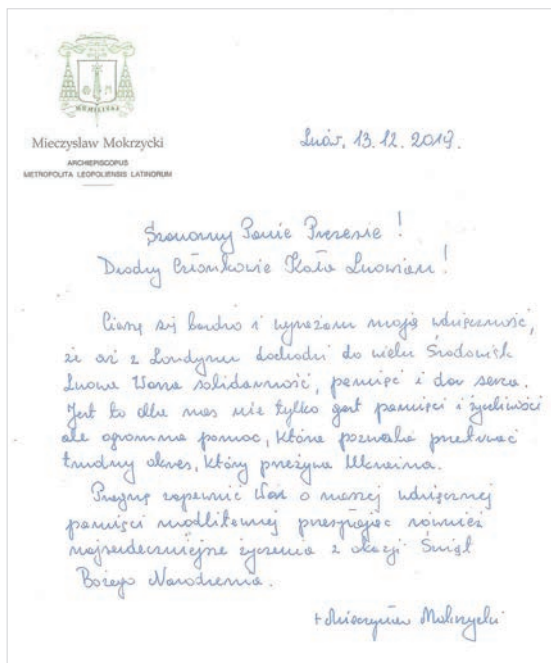 HUMILITAS
Mieczysław Mokrzycki
ARCHIEPISCOPUS
METROPOLITA LEOPOLIENSIS LATINORUM
Lwów, 13.12.2019.
Szanowny Panie Prezesie!
Drodzy Członkowie Koła Lwowian!
Cieszę się bardzo i wyrażam moją wdzięczność,
że aż z Londynu dochodzi do wielu Środowisk
Lwowa Wasza solidarność, pamięć i dar serca.
Jest to dla nas nie tylko gest pamięci i życzliwości
ale ogromna pomoc, która pozwala przetrwać
trudny okres, który przeżywa Ukraina.
Pragnę zapewnić Was o naszej wdzięcznej
pamięci modlitewnej przesyłając również
najserdeczniejsze życzenia z okazji Świąt
Bożego Narodzenia.
+ Mieczysław Mokrzycki